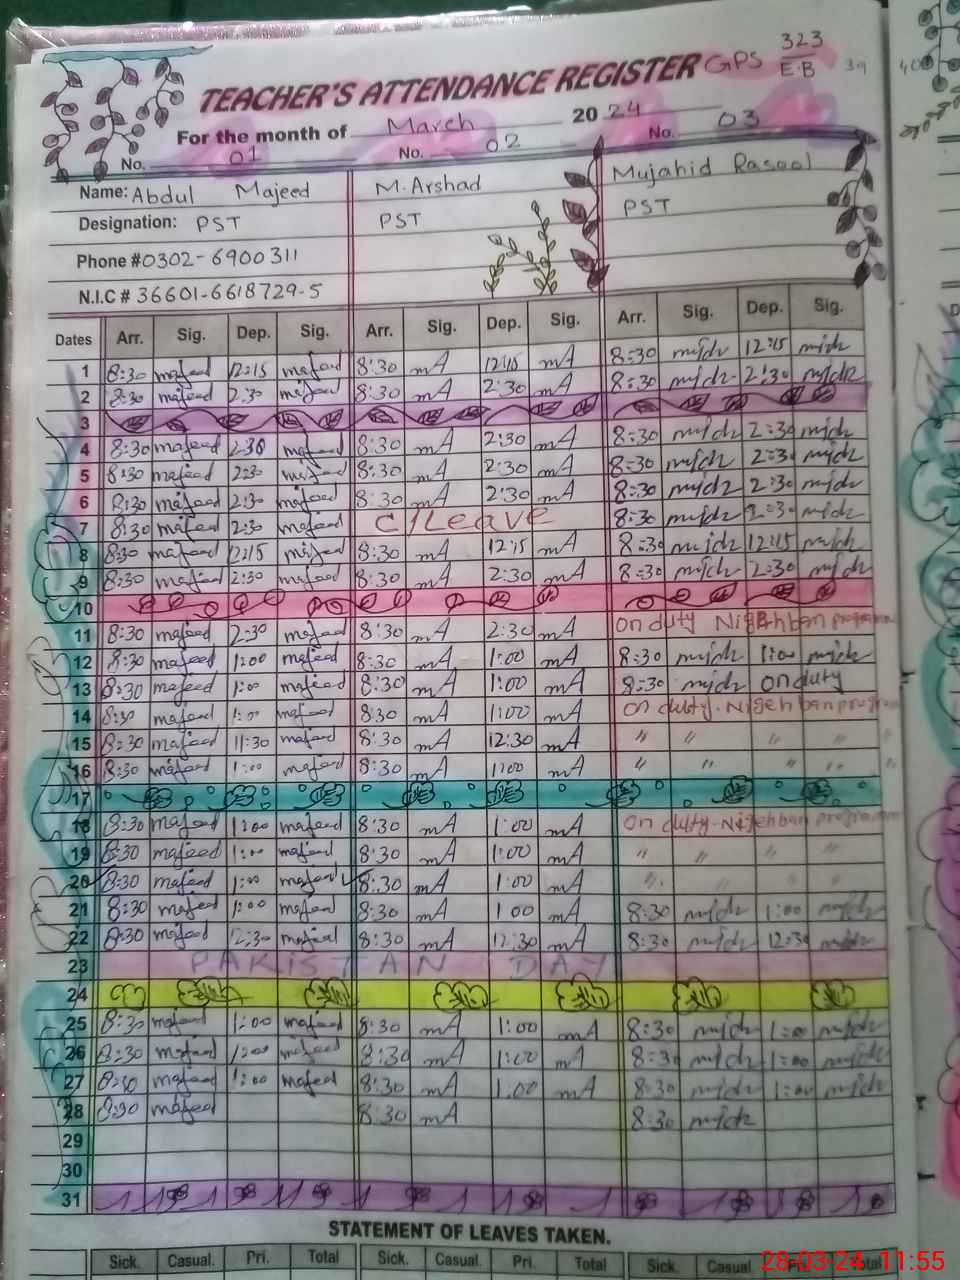 TEACHER'S ATTENDANCE REGISTER GPS 323
E·B
39 40
For the month of March 2024
No. 01 No. 02 No. 03
Name: Abdul Majeed M. Arshad Mujahid Rasool
Designation: PST PST PST
Phone #0302-6900311
N.I.C # 36601-6618729-5
Dates Arr. Sig. Dep. Sig. Arr. Sig. Dep. Sig. Arr. Sig. Dep. Sig.
1 8:30 majeed 12:15 majeed 8:30 mA 12:15 mA 8:30 12:15
2 8:30 majeed 2:30 majeed 8:30 mA 2:30 mA 8:30 2:30
3
4 8:30 majeed 2:30 majeed 8:30 mA 2:30 mA 8:30 2:30
5 8:30 majeed 2:30 majeed 8:30 mA 2:30 mA 8:30 2:30
6 8:30 majeed 2:30 majeed 8:30 mA 2:30 mA 8:30 2:30
7 8:30 majeed 2:30 majeed C/Leave 8:30 2:30
8 8:30 majeed 12:15 majeed 8:30 mA 12:15 mA 8:30 12:15
9 8:30 majeed 2:30 majeed 8:30 mA 2:30 mA 8:30 2:30
10
11 8:30 majeed 2:30 majeed 8:30 mA 2:30 mA On duty Nigehban programm
12 8:30 majeed 1:00 majeed 8:30 mA 1:00 mA 8:30 1:00
13 8:30 majeed 1:00 majeed 8:30 mA 1:00 mA 8:30 on duty
14 8:30 majeed 1:00 majeed 8:30 mA 1:00 mA On duty. Nigehban program
15 8:30 majeed 11:30 majeed 8:30 mA 12:30 mA " " " " "
16 8:30 majeed 1:00 majeed 8:30 mA 1:00 mA " " " " "
17
18 8:30 majeed 1:00 majeed 8:30 mA 1:00 mA On duty. Nigehban programm
19 8:30 majeed 1:00 majeed 8:30 mA 1:00 mA " " " "
20 8:30 majeed 1:00 majeed 8:30 mA 1:00 mA " " " "
21 8:30 majeed 1:00 majeed 8:30 mA 1 00 mA 8:30 1:00
22 8:30 majeed 12:30 majeed 8:30 mA 12:30 mA 8:30 12:30
23 PAKISTAN DAY
24
25 8:30 majeed 1:00 majeed 8:30 mA 1:00 mA 8:30 1:00
26 8:30 majeed 1:00 majeed 8:30 mA 1:00 mA 8:30 1:00
27 8:30 majeed 1:00 majeed 8:30 mA 1:00 mA 8:30 1:00
28 8:30 majeed 8:30 mA 8:30
29
30
31
STATEMENT OF LEAVES TAKEN.
Sick. Casual. Pri. Total Sick. Casual. Pri. Total Sick. Casual
28-03-24 11:55